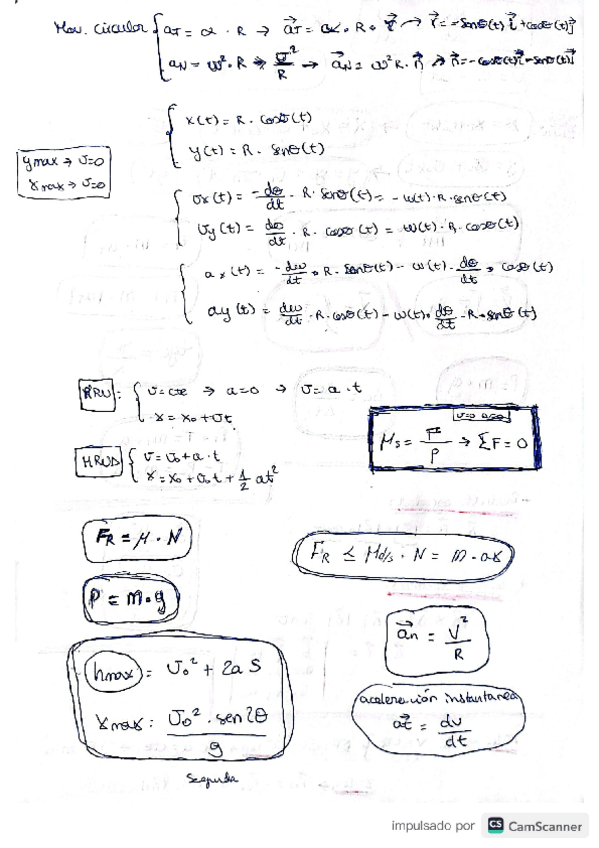 Mov. circular { aT = α · R → a⃗T = α · R · τ⃗ → τ⃗ = -senθ(t) i⃗ + cosθ(t) j⃗
aN = ω² · R → v²/R → a⃗N = ω² R · n⃗ → n⃗ = -cosθ(t) i⃗ - senθ(t) j⃗
x(t) = R · cosθ(t)
y(t) = R · senθ(t)
ymax → v=0
xmax → v=0
vx(t) = -dθ/dt · R · senθ(t) = -ω(t) · R · senθ(t)
vy(t) = dθ/dt · R · cosθ(t) = ω(t) · R · cosθ(t)
ax(t) = -dω/dt · R · senθ(t) - ω(t) · dθ/dt · cosθ(t)
ay(t) = dω/dt · R · cosθ(t) - ω(t) · dθ/dt · R · senθ(t)
MRU: { v = cte ⇒ a=0 → v = a · t
x = x₀ + vt.
v=0 a=0
μs = F/P → ΣF = 0
MRUA { v = v₀ + a · t
x = x₀ + v₀t + 1/2 at²
FR = μ · N
FR ≤ μd/s · N = m · ax
P = m · g
a⃗n = v²/R
hmax = v₀² + 2a S
xmax = v₀² · sen2θ / g
aceleración instantanea
a⃗t = dv/dt
Segunda
impulsado por CS CamScanner